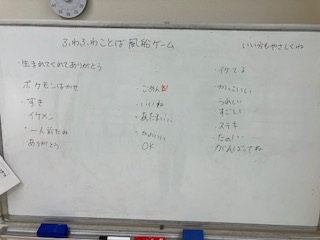 ふわふわことば風船ゲーム
いい方もやさしくね
・生まれてくれてありがとう
ポケモンはかせ
・すき
イケメン
・一人前だね
ありがとう
・ごめん
・いいね
・イケてる
・かっこいい
うれしい
すごい
ステキ
OK
がんばってね